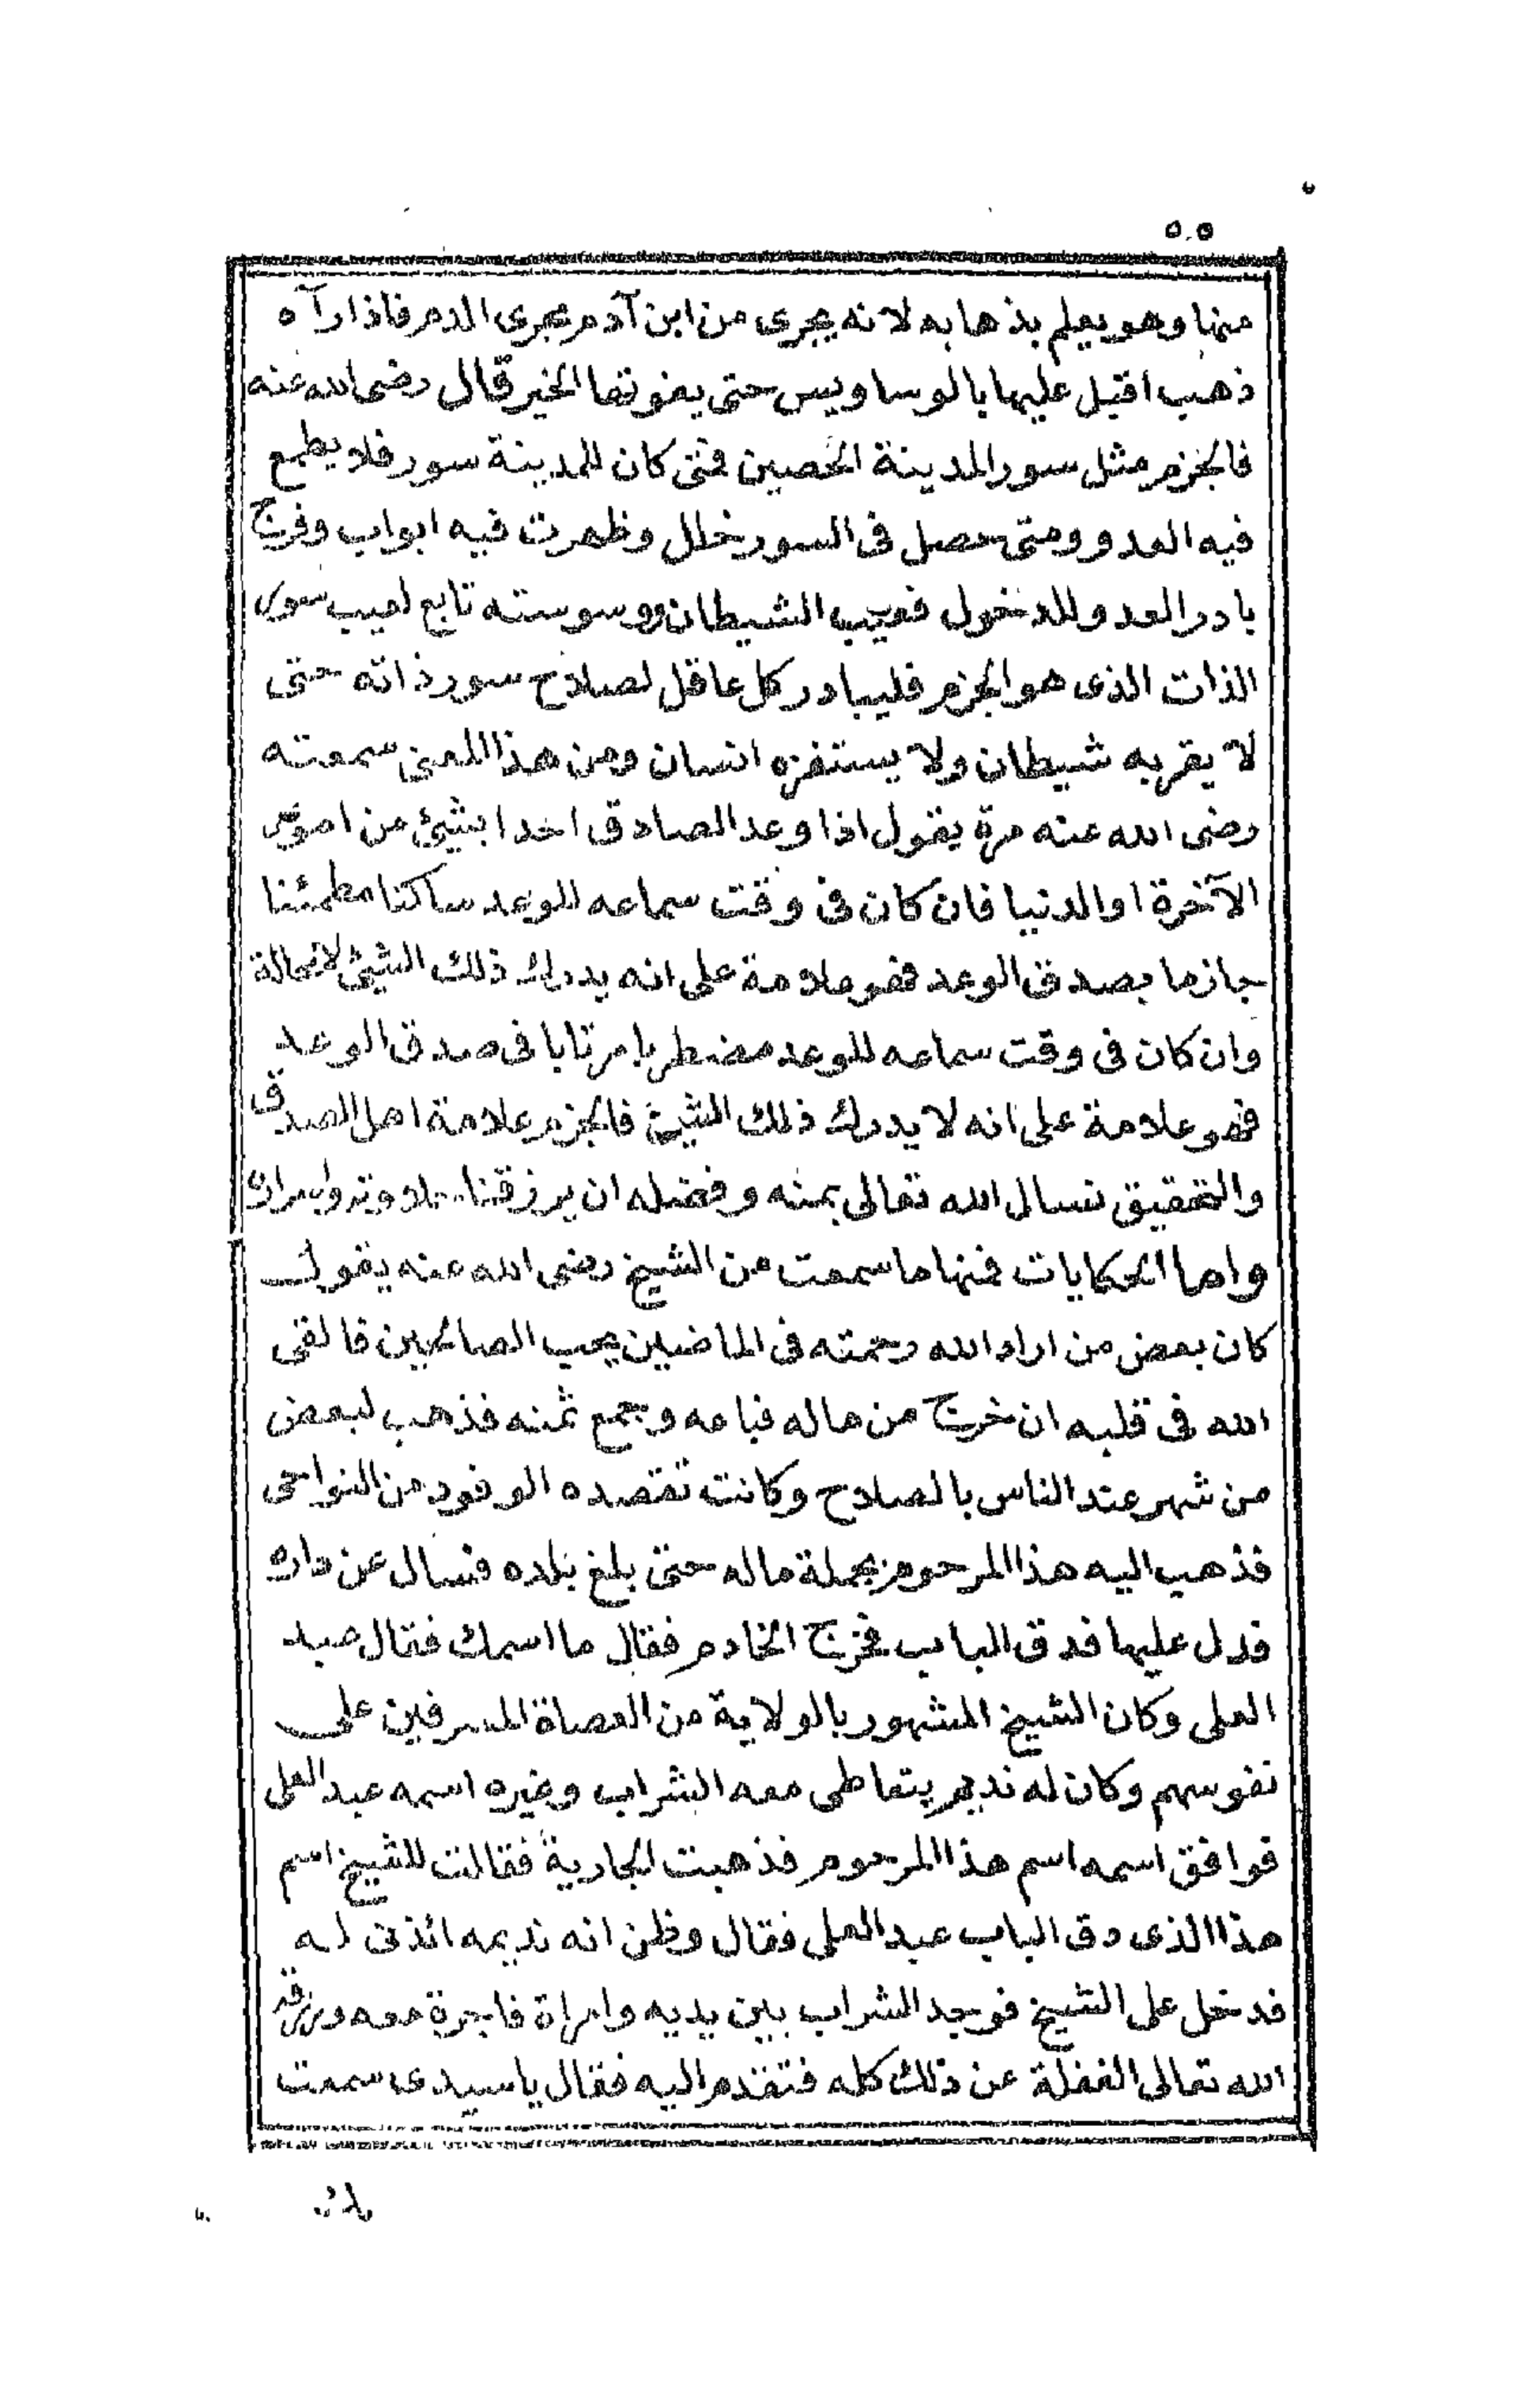 ٥٥
منها وهو يعلم بذهابه لانه يجرى من ابن آدم مجرى الدم فاذا رآه
ذهب اقبل عليها بالوساويس حتى يفوتها الخير قال رضى الله عنه
فالجزم مثل سور المدينة الحصين فمتى كان للمدينة سور فلا يطمع
فيه العدو ومتى حصل فى السور خلل وظهرت فيه ابواب وفرج
بادر العدو للدخول فعيب الشيطان ووسوسته تابع لعيب سور
الذات الذى هو الجزم فليبادر كل عاقل لصلاح سور ذاته حتى
لا يقربه شيطان ولا يستفزه انسان ومن هذا المعنى سمعته
رضى الله عنه مرة يقول اذا وعد الصادق احدا بشئ من امور
الآخرة او الدنيا فان كان فى وقت سماعه للوعد ساكنا مطمئنا
جازما بصدق الوعد فهو علامة على انه يدرك ذلك الشئ لامحالة
وان كان فى وقت سماعه للوعد مضطربا مرتابا فى صدق الوعد
فهو علامة على انه لا يدرك ذلك الشئ فالجزم علامة اهل الصدق
والتحقيق نسال الله تعالى بمنه وفضله ان يرزقنا حلاوته
واما الحكايات فمنها ما سمعت من الشيخ رضى الله عنه يقول
كان بعض من اراد الله رحمته فى الماضيين يحب الصالحين فالقى
الله فى قلبه ان خرج من ماله فباعه وجمع ثمنه فذهب لبعض
من شهر عند الناس بالصلاح وكانت تقصده الوفود من النواحى
فذهب اليه هذا المرحوم بجملة ماله حتى بلغ بلده فسال عن داره
فدل عليها فدق الباب فخرج الخادم فقال ما اسمك فقال عبد
العلى وكان الشيخ المشهور بالولاية من العصاة المسرفين على
نفوسهم وكان له نديم يتعاطى معه الشراب وغيره اسمه عبد العلى
فوافق اسمه اسم هذا المرحوم فذهبت الجارية فقالت للشيخ اسم
هذا الذى دق الباب عبد العلى فقال وظن انه نديمه ائذنى له
فدخل على الشيخ فوجد الشراب بين يديه وامراة فاجرة معه ورزقه
الله تعالى الغفلة عن ذلك كله فتقدم اليه فقال يا سيدى سمعت
بك